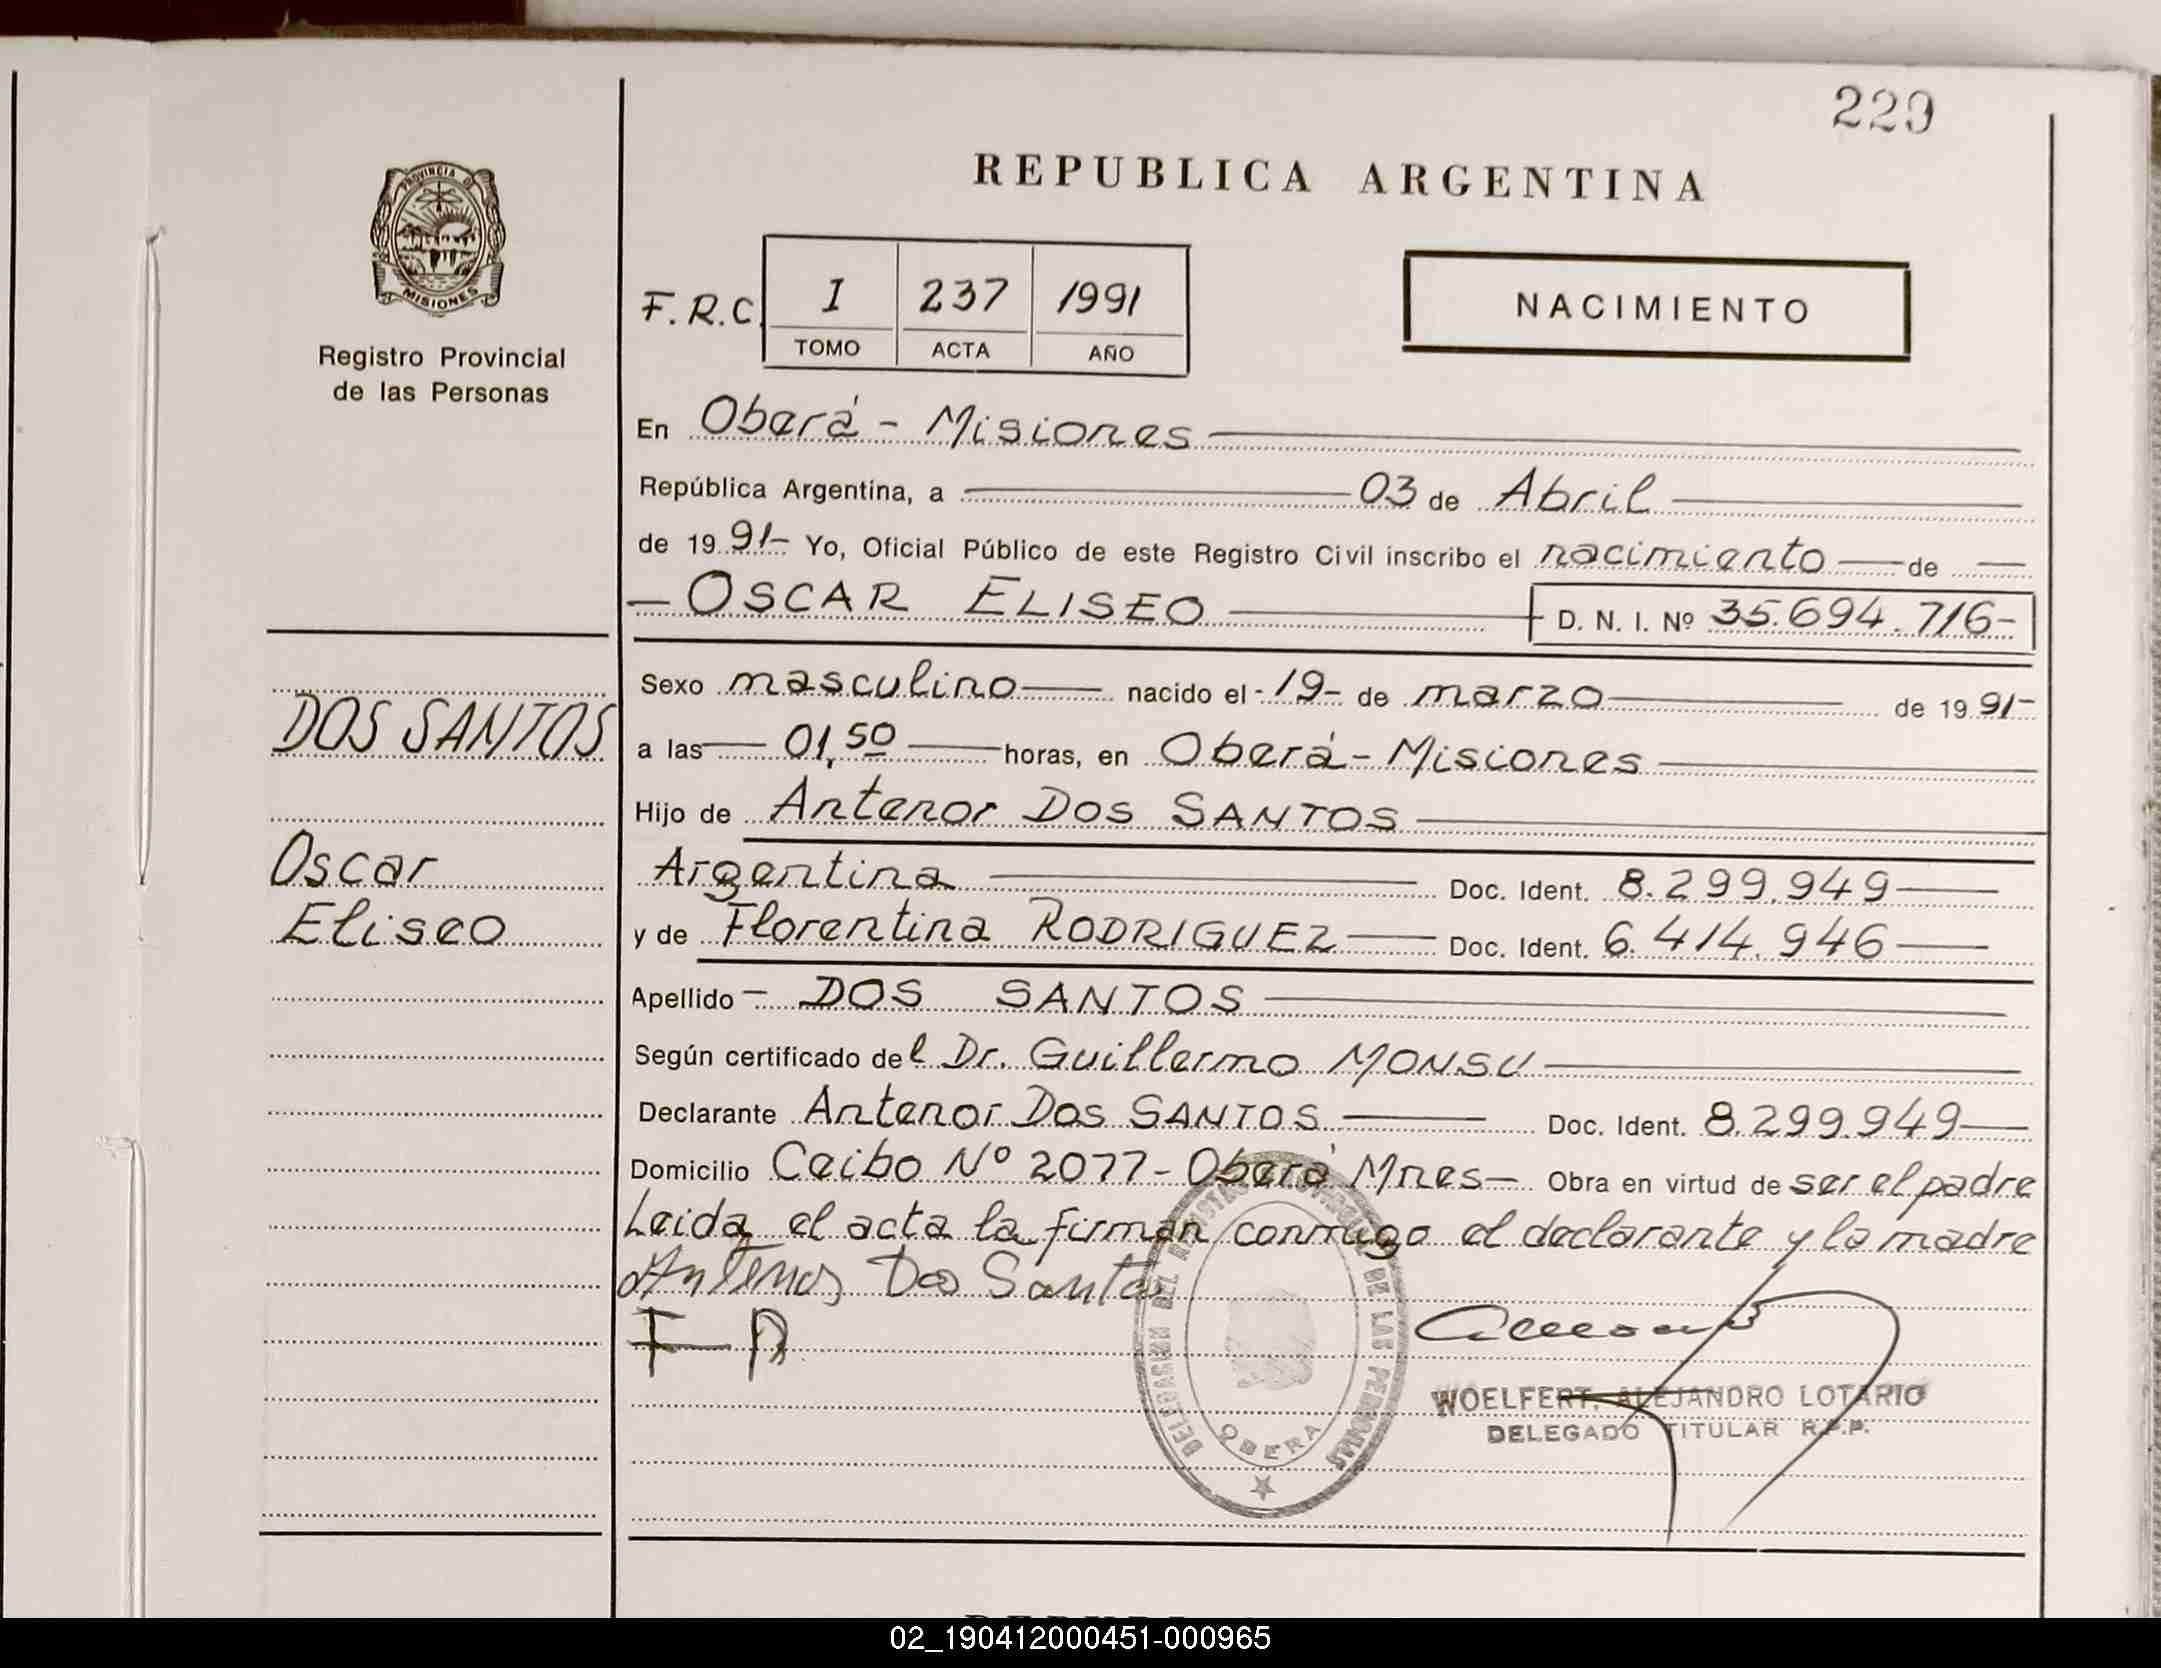 229
REPUBLICA ARGENTINA
PROVINCIA DE
MISIONES
Registro Provincial
de las Personas
F.R.C. I 237 1991
TOMO ACTA AÑO
NACIMIENTO
En Oberá - Misiones
República Argentina, a 03 de Abril
de 1991- Yo, Oficial Público de este Registro Civil inscribo el nacimiento de
- OSCAR ELISEO D. N. I. Nº 35.694.716-
Sexo masculino nacido el -19- de marzo de 1991-
a las 01,50 horas, en Oberá - Misiones
Hijo de Antenor DOS SANTOS
Argentina Doc. Ident. 8.299.949
y de Florentina RODRIGUEZ Doc. Ident. 6.414.946
Apellido - DOS SANTOS
Según certificado del Dr. Guillermo MONSU
Declarante Antenor Dos SANTOS Doc. Ident. 8.299.949
Domicilio Ceibo Nº 2077 - Oberá Mnes - Obra en virtud de ser el padre
Leida el acta la firman conmigo el declarante y la madre
Antenor Dos Santos
F R
DOS SANTOS
Oscar
Eliseo
DELEGACION DEL REGISTRO PROVINCIAL DE LAS PERSONAS
OBERA
WOELFERT, ALEJANDRO LOTARIO
DELEGADO TITULAR R.P.P.
02_190412000451-000965